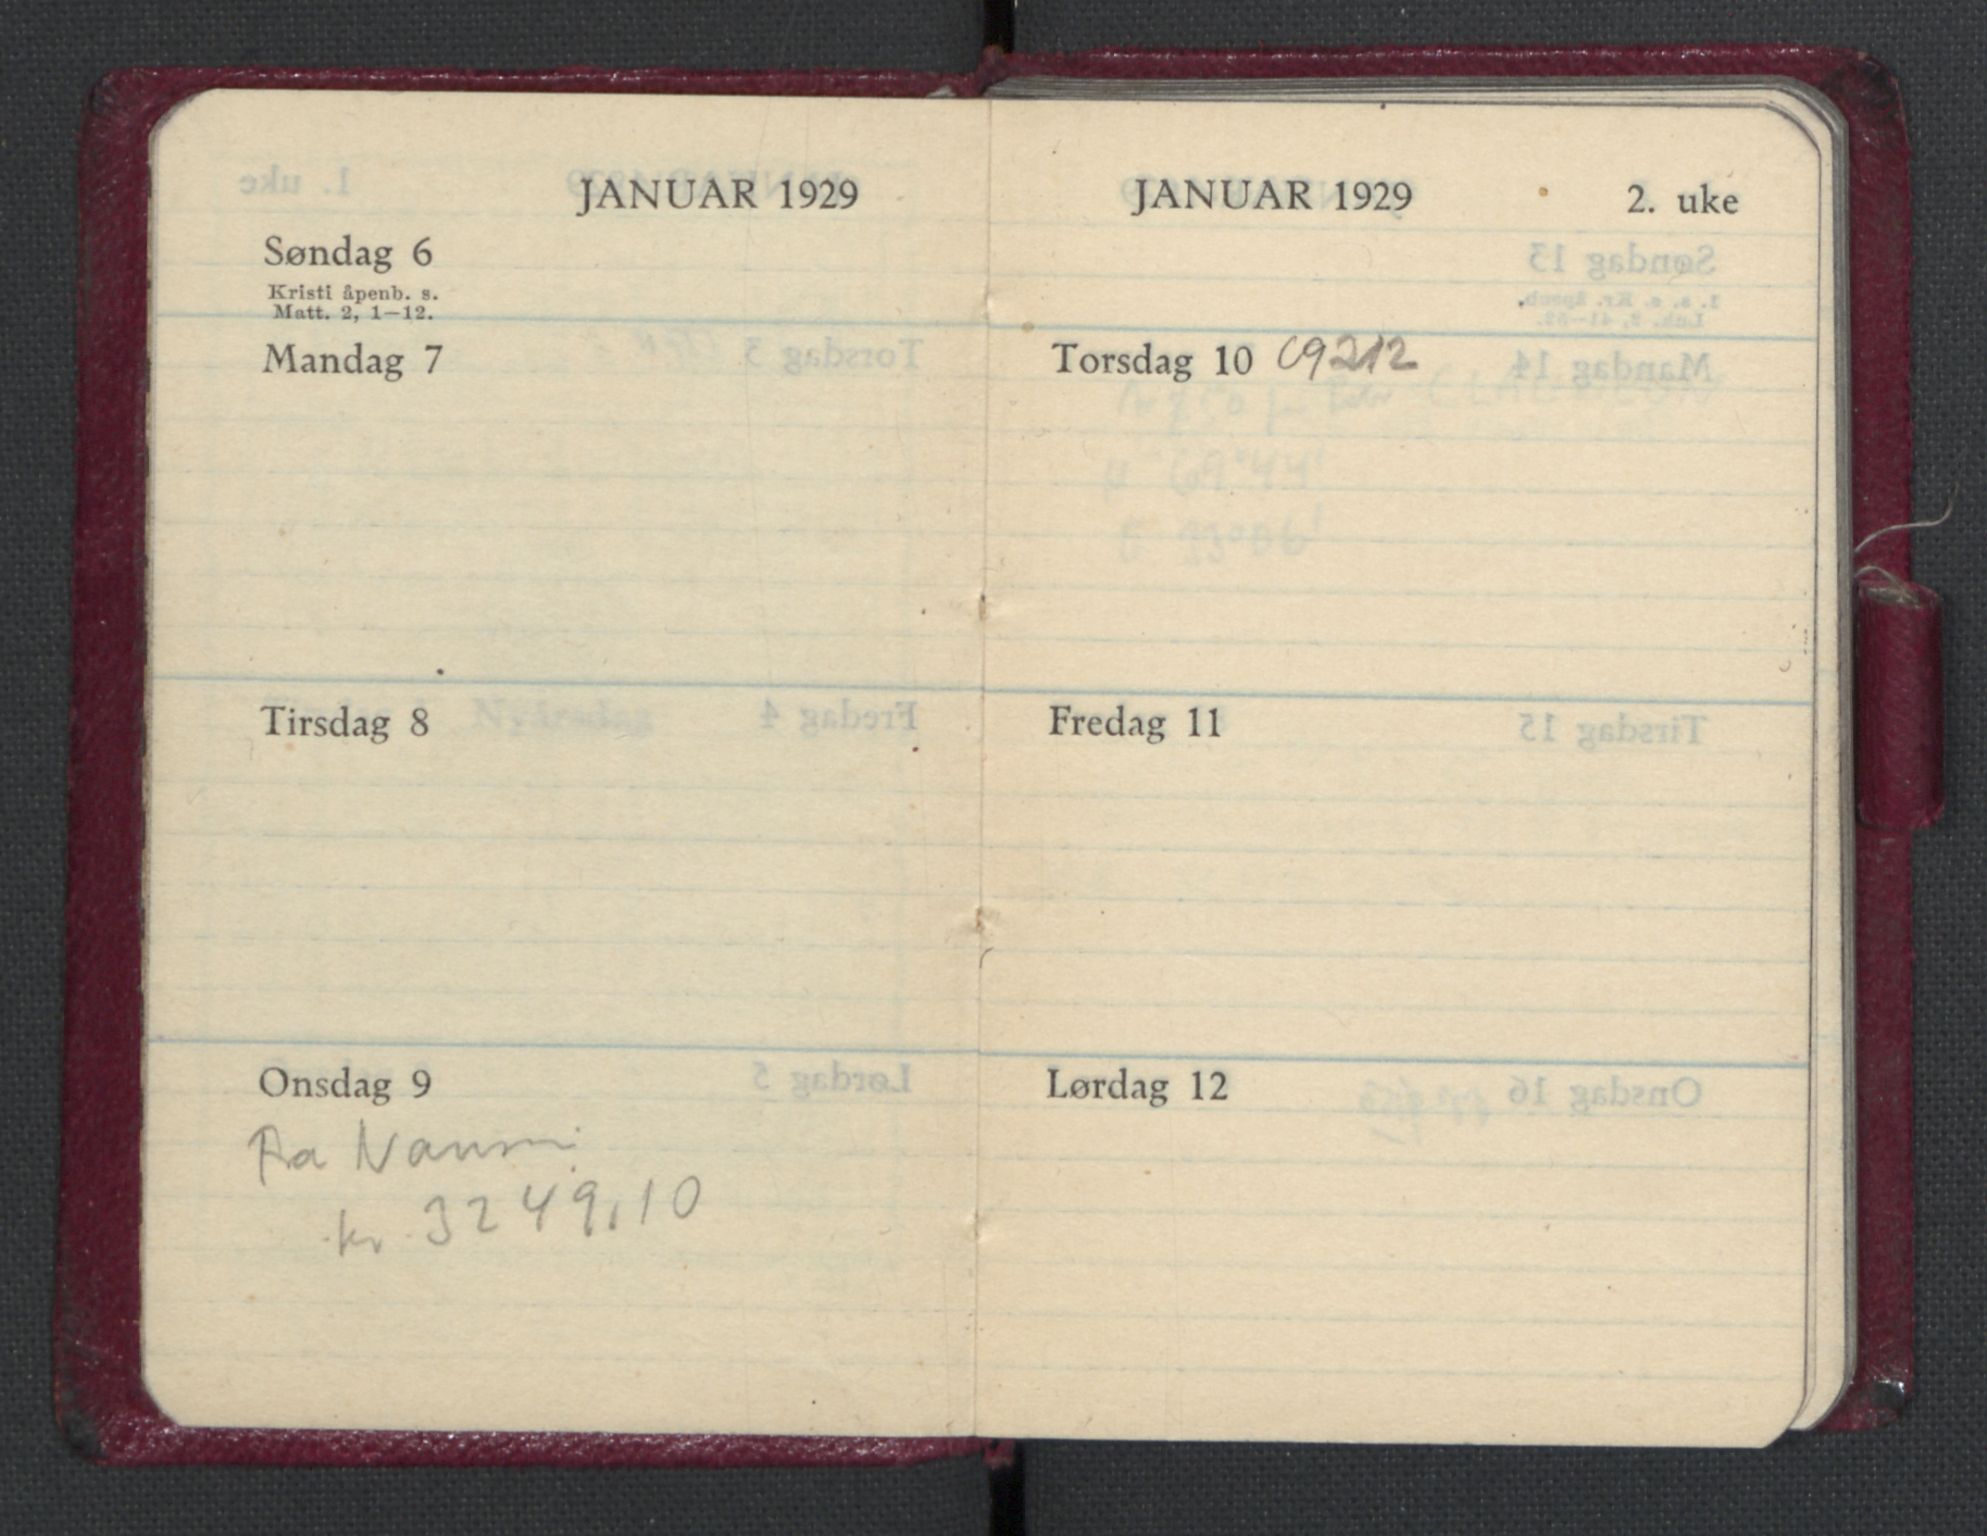 JANUAR 1929
Søndag 6
Kristi åpenb. s.
Matt. 2, 1—12.
Mandag 7
Tirsdag 8
Onsdag 9
Fra
kr. 3249,10
JANUAR 1929 2. uke
Torsdag 10
Fredag 11
Lørdag 12